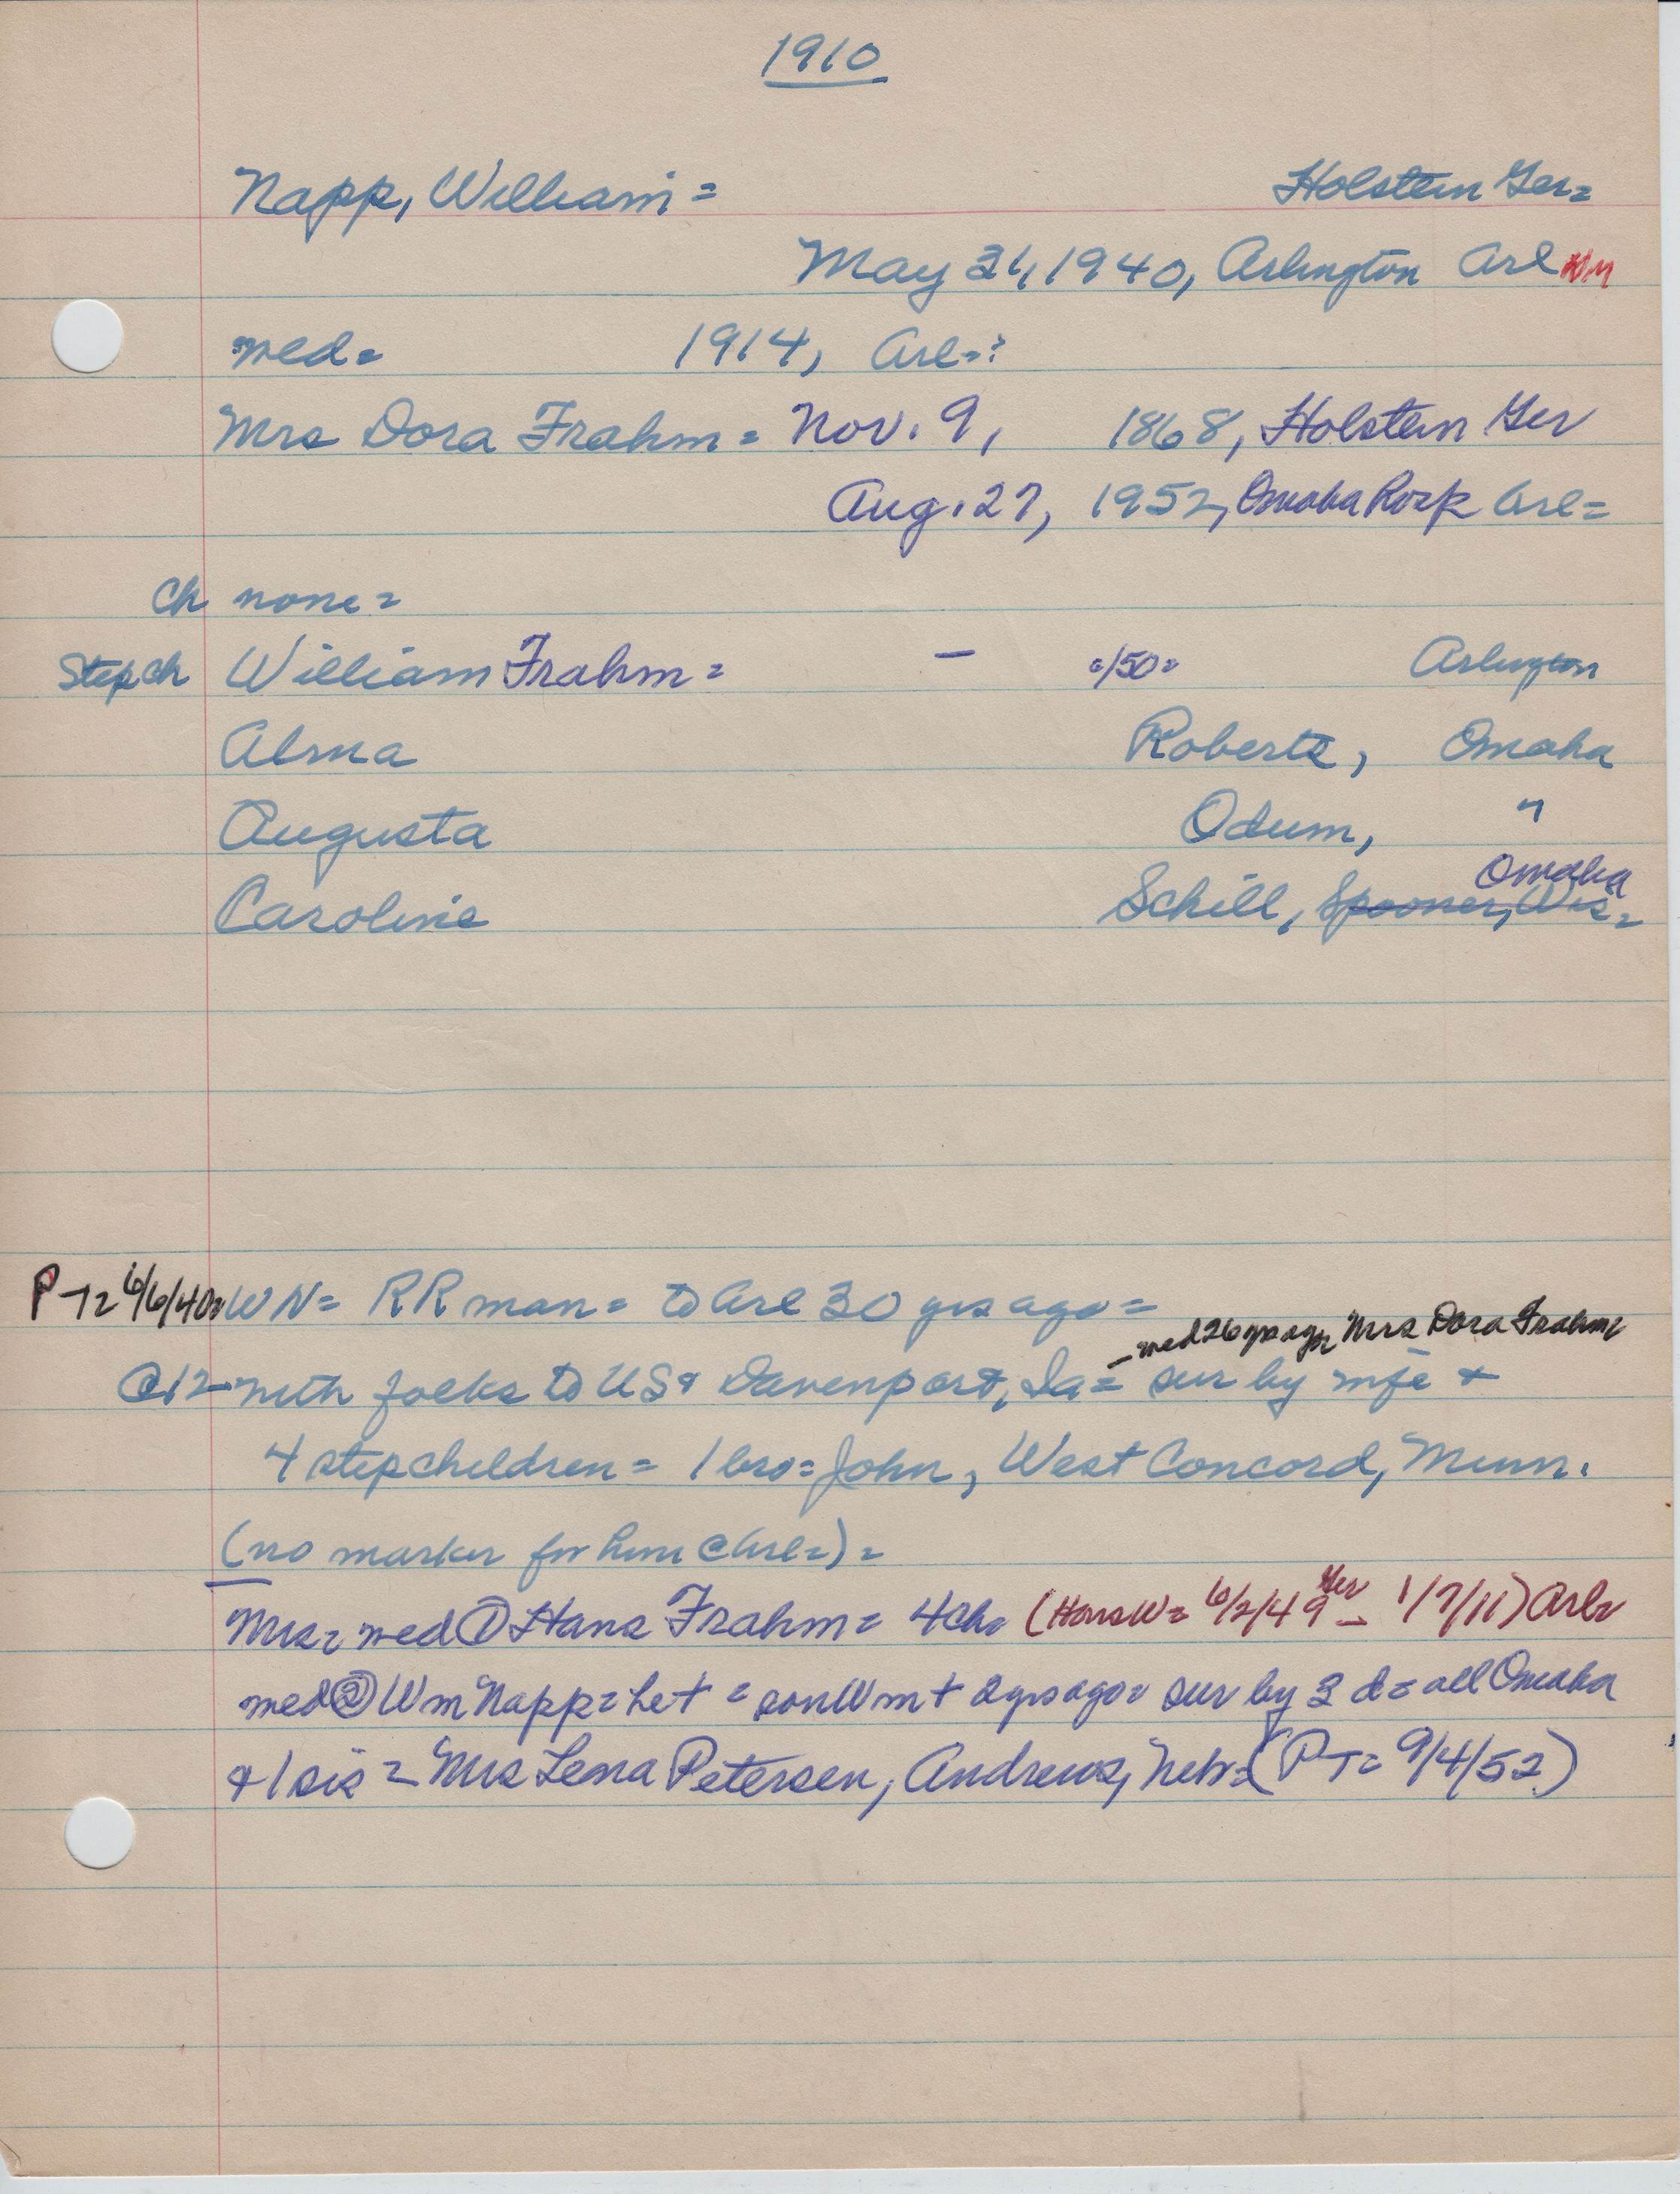 1910
Napp, William = Holstein Ger=
May 31, 1940, Arlington Arl NM
med= 1914, Arl=?
Mrs Dora Frahm = Nov. 9, 1868, Holstein Ger
Aug. 27, 1952, Omaha Arl=
Ch none =
Step ch William Frahm = - =/50= Arlington
Alma Roberts, Omaha
Augusta Odum, "
Omaha
Caroline Schill, Spooner, Wis.=
PT= 6/6/40= WN= RR man= to Arl 30 yrs ago=
- med 26 yrs ago= Mrs Dora Frahm=
@12 with folks to US & Davenport, Ia= sur by wife +
4 stepchildren = 1 bro= John, West Concord, Minn.
(no marker for him @ Arl=) =
Mrs= med ① Hans Frahm = 4 ch= (Hans W= 6/2/49 Ger - 1/7/11) Arl=
med ② Wm Napp= he + = son Wm + 2 yrs ago= sur by 3 d= all Omaha
& 1 sis = Mrs Lena Petersen, Andrews, Neb= (PT= 9/4/52)